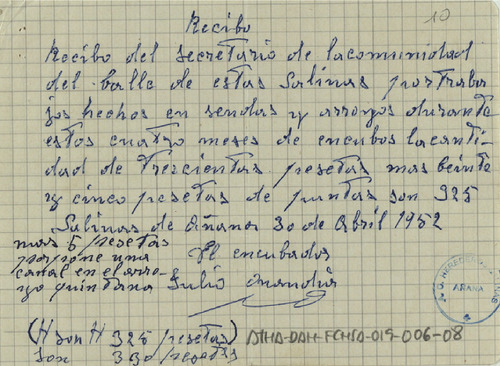 Recibo
10
Recibo del Secretario de lacomunidad
del balle de estas Salinas portraba
jos hechos en sendas y arroyos durante
estos cuatro meses de encubos lacanti-
dad de Trescientas pesetas mas beinte
y cinco pesetas de puntas son 325
Salinas de Añana 30 de Abril 1952
mas 5 pesetas
por pone una
canal en el arro-
yo quintana
El encubador
Julio
(H son H 325 pesetas)
son 330 pesetas
ATHA-DAH-FCHSA-019-006-08
AÑANA